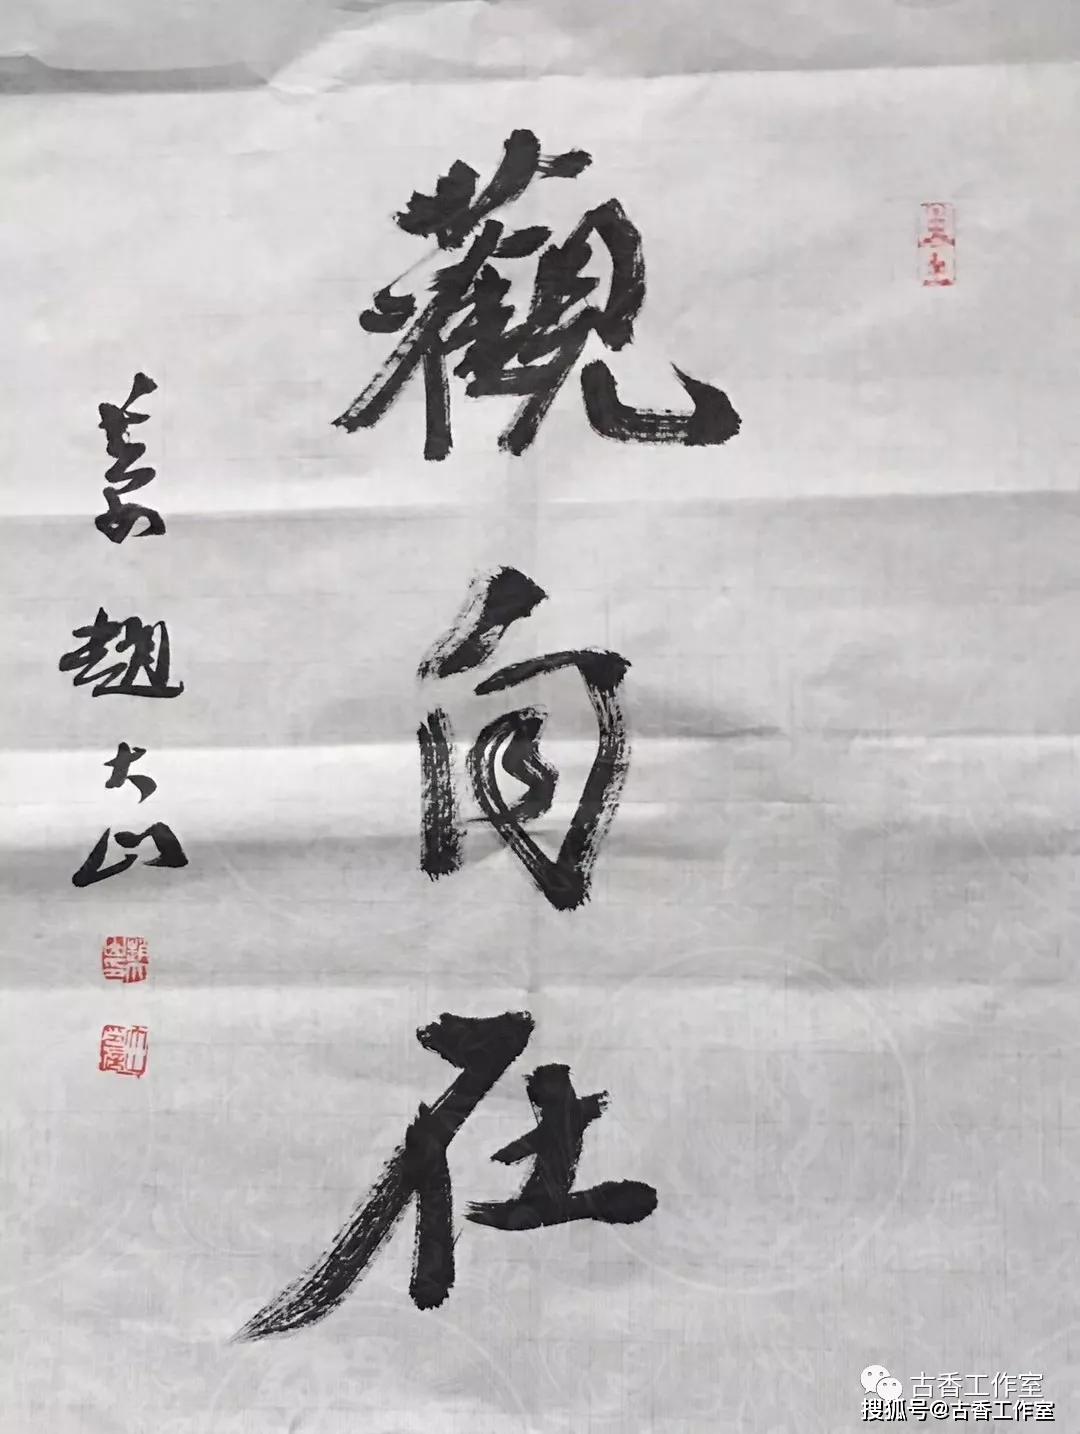 觀自在
趙大山
古香工作室
搜狐号@古香工作室